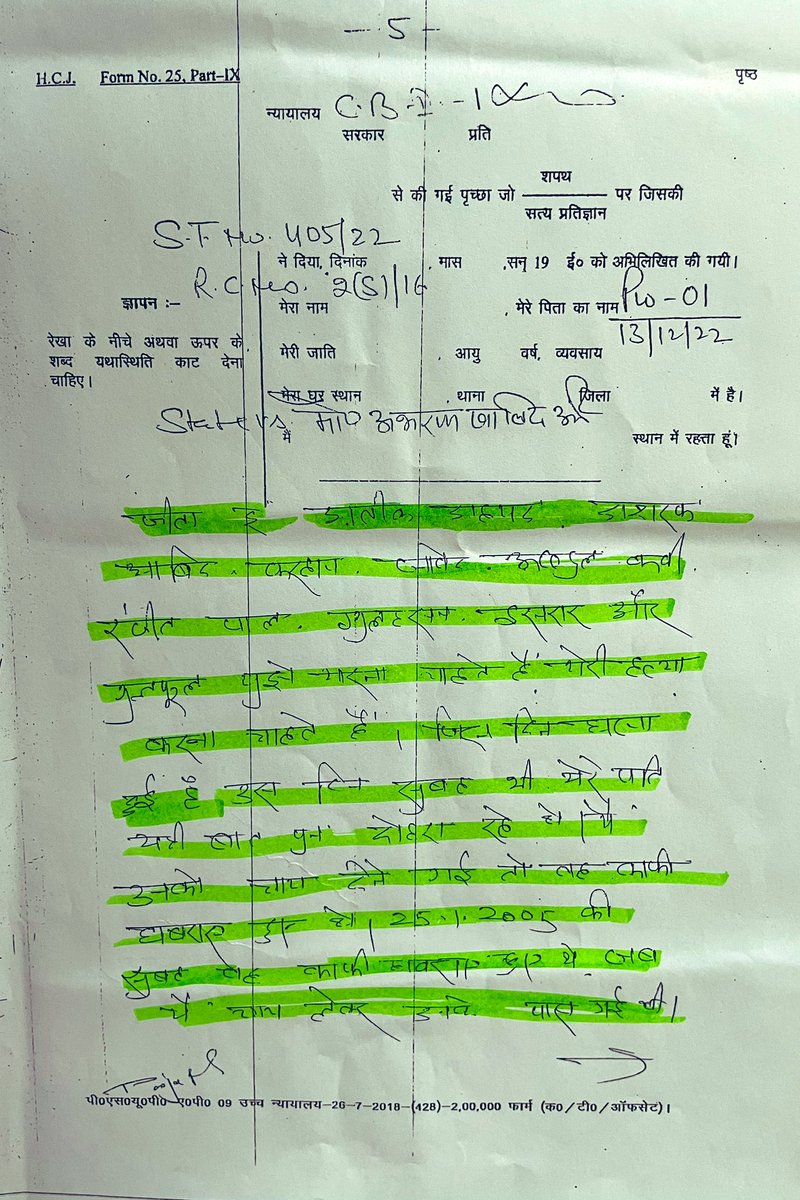 5
H.C.J. Form No. 25, Part-IX पृष्ठ
न्यायालय C.B.I.
सरकार प्रति
शपथ
से की गई पृच्छा जो पर जिसकी
सत्य प्रतिज्ञान
S.T. No. 405/22
ने दिया, दिनांक मास ,सन् 19 ई० को अभिलिखित की गयी।
R.C. No. 2(S)/16
ज्ञापन :– मेरा नाम , मेरे पिता का नाम PW-01
13/12/22
रेखा के नीचे अथवा ऊपर के
शब्द यथास्थिति काट देना
चाहिए।
मेरी जाति , आयु वर्ष, व्यवसाय
मेरा घर स्थान थाना जिला में है।
State vs.
में स्थान में रहता हूं।
आबिद. फरहान. जावेद. अब्दुल कवी.
रंजीत पाल. गुलहसन. इसरार और
गुलफूल मुझे मारना चाहते हैं मेरी हत्या
करना चाहते हैं। जिस दिन घटना
हुई है उस दिन सुबह भी मेरे पति
यही बात पुनः दोहरा रहे थे। मैं
उनको चाय देने गई तो वह काफी
घबराए हुए थे। 25.1.2005 की
सुबह वह काफी घबराए हुए थे जब
मैं चाय लेकर उनके पास गई थी।
पी०एस०यू०पी०–ए०पी० 09 उच्च न्यायालय–26-7-2018–(428)–2,00,000 फार्म (क०/टी०/ऑफसेट)।